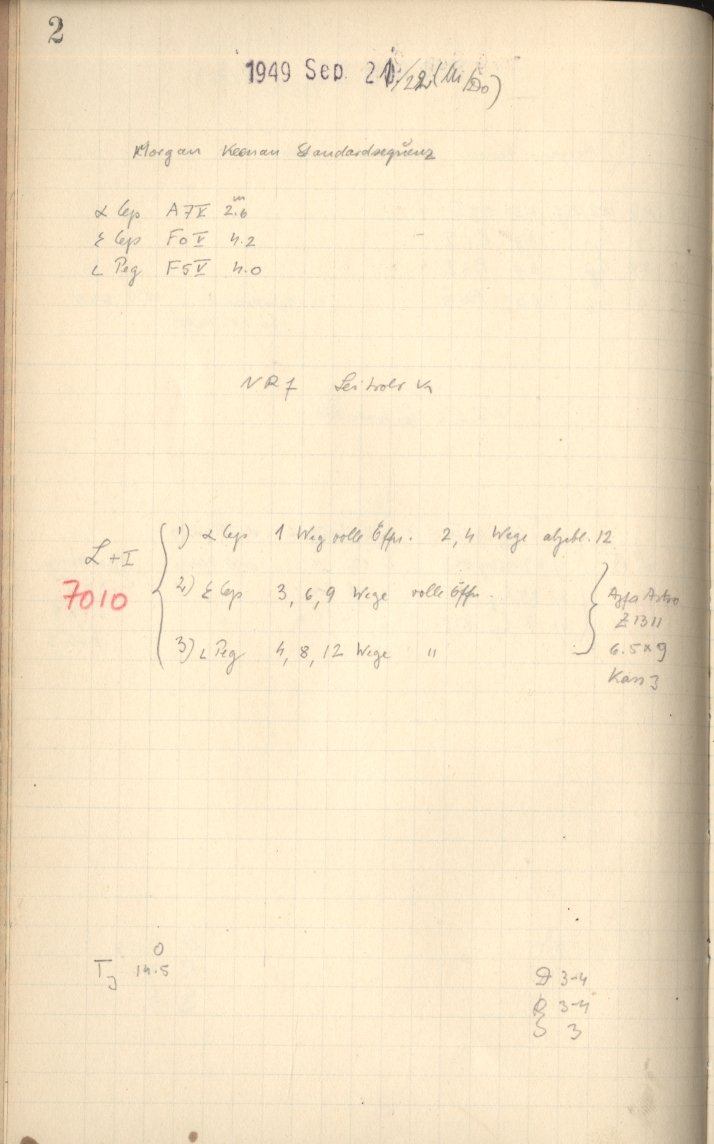 2
1949 Sep. 21/22 (Mi/Do)
Morgan Keenan Standardsequenz
α Cep A7V 2.6ᵐ
ε Cep F0V 4.2
ι Peg F5V 4.0
NR 7
L+I
7010
1) α Cep 1 Weg volle Öffn. 2, 4 Wege abgebl. 12
2) ε Cep 3, 6, 9 Wege volle Öffn.
3) ι Peg 4, 8, 12 Wege "
Agfa Astro
Z 1311
6.5 x 9
Kass 3
T 14.5°
D 3-4
R 3-4
S 3